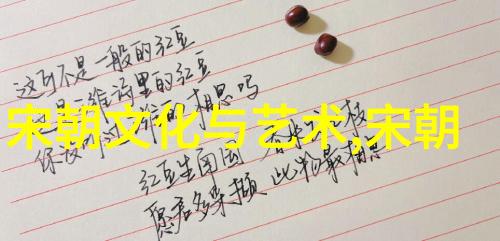 这可不是一般的红豆
这是王维诗里的红豆
你没
相思吗
宋朝文化与艺术,宋朝
红豆生南国 春来
枝
愿君多采撷 此物最相思